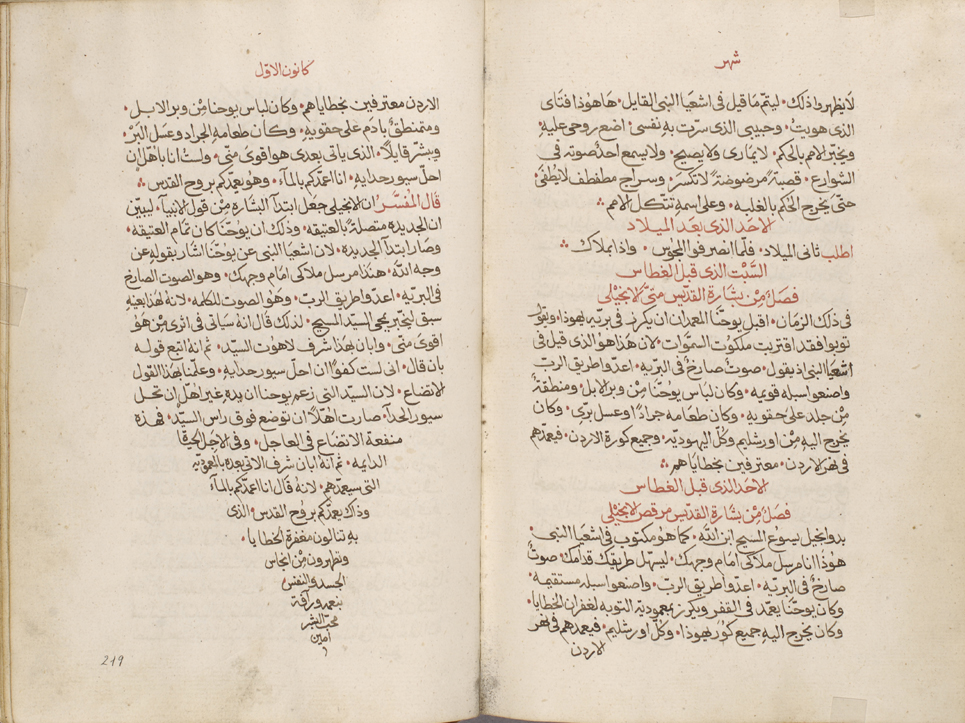 شهر
لا يظهروا ذلك ۰ ليتمّ مَا قيل فى اشعيَا النبى القايل ۰ هَاهوذَا فتَاى
الذى هويتُ ۰ وحبيبى الذى سرّت به نفسى ۰ اضع روحى عليهِ ۰
ويخبّر الامم بالحكم ۰ لا يمارى ولا يصيح ۰ ولا يسمع احدٌ صوته فى
الشوارع ۰ قصبةً مرضوضةً لا تكسَر ۰ وسراج مطفطف لا يُطفَى ۰
حتىّ يخرج الحكم بالغلبه ۰ وعلى اسمهِ تتكل الامم ۰
الاحَد الذى بعَد الميلاد
اطلب ثانى الميلاد ۰ فلمّا انصرفوا المجوس ۰ واذا بملاك ۰
السَّبْت الذى قبل الغطاس
فصَلٌ مِنْ بشَارة القدّيس متىَّ الانجيْلى
فى ذلك الزمَان ۰ اقبل يوحنّا المعمدان ان يكرز فى بريّه يهوذا ۰ ويقول
توبوا فقد اقتربت ملكوُت السمَوات ۰ لان هذَا هوُ الذى قيل فى
اشعيَا النبى اذ يقول ۰ صوتٌ صارخٌ فى البريّه ۰ اعدّوا طريق الربّ
واصنعوا سبله قويمه ۰ وكان لباس يوحنّا مِنْ وبر الابل ۰ ومنطقةٌ
مِنْ جلد على حقويه ۰ وكان طعَامه جرادًا وعسل برّى ۰ وكان
يخرج اليه مِنْ اورشليم وكلّ اليهوديّه ۰ وجميع كورة الاردن ۰ فيعمّدهم
فى نهر الاردن ۰ معترفين بخطايَاهم ۰
الاحَد الذى قبل الغطاس
فصَلٌ مِنْ بشَارة القدّيس مرقص الانجيْلى
بدو انجيل يسوع المسيح ابن اللّه ۰ كما هوُ مكتوب فى اشعيا النبى ۰
هوُذَا انا مرسل ملاكى امَام وجهك ۰ ليسهّل طريقك قدّامك ۰ صوتٌ
صارخٌ فى البريّه ۰ اعدّوا طريق الربّ ۰ واصنعوا سبله مستقيمه ۰
وكان يوحنّا يعمّد فى القفر ويكرز بمعموديّة التوبه لغفران الخطايا ۰
وكان يخرج اليهِ جميع كوُر يهوذا ۰ وكلّ اورشليم ۰ فيعمدهم فى نهر
الاردن
كانون الاوّل
الاردن معترفين بخطاياهم ۰ وكان لباس يوحنا مِنْ وبر الابل ۰
ومتمنطقٌ بادَم على حقويهِ ۰ وكان طعامه الجراد وعسَل البرّ ۰
وبشّر قايلاً ۰ الذى ياتى بعدى هوا قوىَ منّى ۰ ولستُ انا باهْلٍ ان
احلّ سيور حذايهِ ۰ انا اعمّدكم بالمآء ۰ وهوُ يعمّدكم بروح القدس ۰
قَال المُفسّرُ ان الانجيلى جعل ابتدآ البشاره مِنْ قول الانبيآ ۰ ليبيّن
ان الجديده متصلةً بالعتيقه ۰ وذلك ان يوحنّا كان تمام العتيقه ۰
وصار ابتدآ الجديده ۰ لان اشعيَا النبى عن يوحنّا اشار بقولهِ عن
وجه اللّه ۰ هنذا مرسل ملاكى امَام وجهك ۰ وهوُ الصوت الصارخ
فى البريّه ۰ اعدّوا طريق الربّ ۰ وهَوُ الصوت للكلمه ۰ لانهُ لهُذا بعَينهِ
سبق ليخبّر بمجى السيّد المسيح ۰ لذلك قال انهُ سيَاتى فى اثرى مَنْ هَوُ
اقوىَ منّى ۰ وابان بهَذا شرف لاهوُت السيّد ۰ ثم انهُ اتبع قوله
بان قال ۰ انى لست كفوًا ان احلّ سيور حذايهِ ۰ وعلّمنا بهَذا القول
الاتضاع ۰ لان السيّد التى زعم يوحنا ان يده غير اهْلٍ ان تحل
سيور الحذآ ۰ صارت اهْلاً ان توضع فوق راس السيّد ۰ فهذه
منفعة الاتضَاع فى العاجل ۰ وفى الاجل الحيَاة
الدايمه ۰ ثم انهُ ابان شرف الاتى بعده بالمعموديّه
التى سيعمّدهم ۰ لانهُ قال انا اعمّدكم بالمآء
وذاك يعمّدكم بروُح القدس ۰ الذى
بهِ تنالون مغفرة الخطايا ۰
وتطهرون مِنْ انجاس
الجسد والنفس
بنعمة ورآفة
محبّ البشر
امين
219